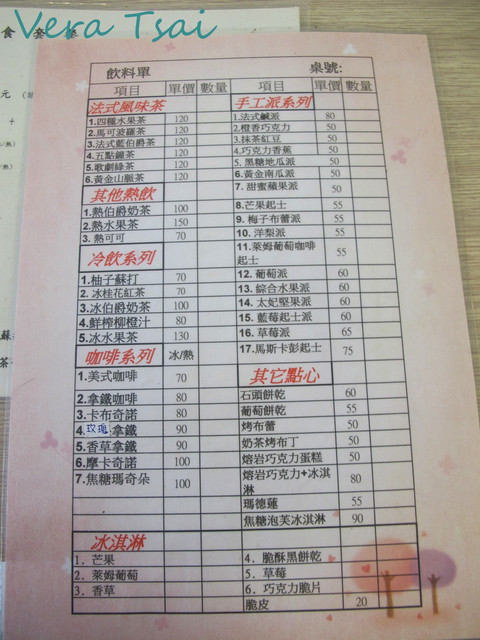 Vera Tsai
食 套 餐
元
飲料單 桌號:
項目 單價 數量
法式風味茶
1.四種水果茶 120
2.馬可波羅茶 120
3.法式藍伯爵茶 120
4.五點鐘茶 120
5.歌劇綠茶 120
6.黃金山脈茶 120
其他熱飲
1.熱伯爵奶茶 100
2.熱水果茶 150
3.熱可可 70
冷飲系列
1.柚子蘇打 70
2.冰桂花紅茶 70
3.冰伯爵奶茶 100
4.鮮榨柳橙汁 80
5.冰水果茶 130
咖啡系列 冰/熱
1.美式咖啡 70
2.拿鐵咖啡 80
3.卡布奇諾 80
4.玫瑰拿鐵 90
5.香草拿鐵 90
6.摩卡奇諾 100
7.焦糖瑪奇朵 100
項目 單價 數量
手工派系列
1.法式鹹派 80
2.橙香巧克力 50
3.抹茶紅豆 50
4.巧克力香蕉 50
5.黑糖地瓜派 50
6.黃金南瓜派 50
7.甜蜜蘋果派 50
8.芒果起士 55
9.梅子布蕾派 55
10.洋梨派 55
11.萊姆葡萄咖啡
起士 55
12.葡萄派 60
13.綜合水果派 60
14.太妃堅果派 60
15.藍莓起士派 60
16.草莓派 65
17.馬斯卡彭起士 75
其它點心
石頭餅乾 60
葡萄餅乾 55
烤布蕾 50
奶茶烤布丁 50
熔岩巧克力蛋糕 50
熔岩巧克力+冰淇
淋 80
瑪德蓮 55
焦糖泡芙冰淇淋 90
冰淇淋
1.芒果
2.萊姆葡萄
3.香草
4.脆酥黑餅乾
5.草莓
6.巧克力脆片
脆皮 20
蘇
茶